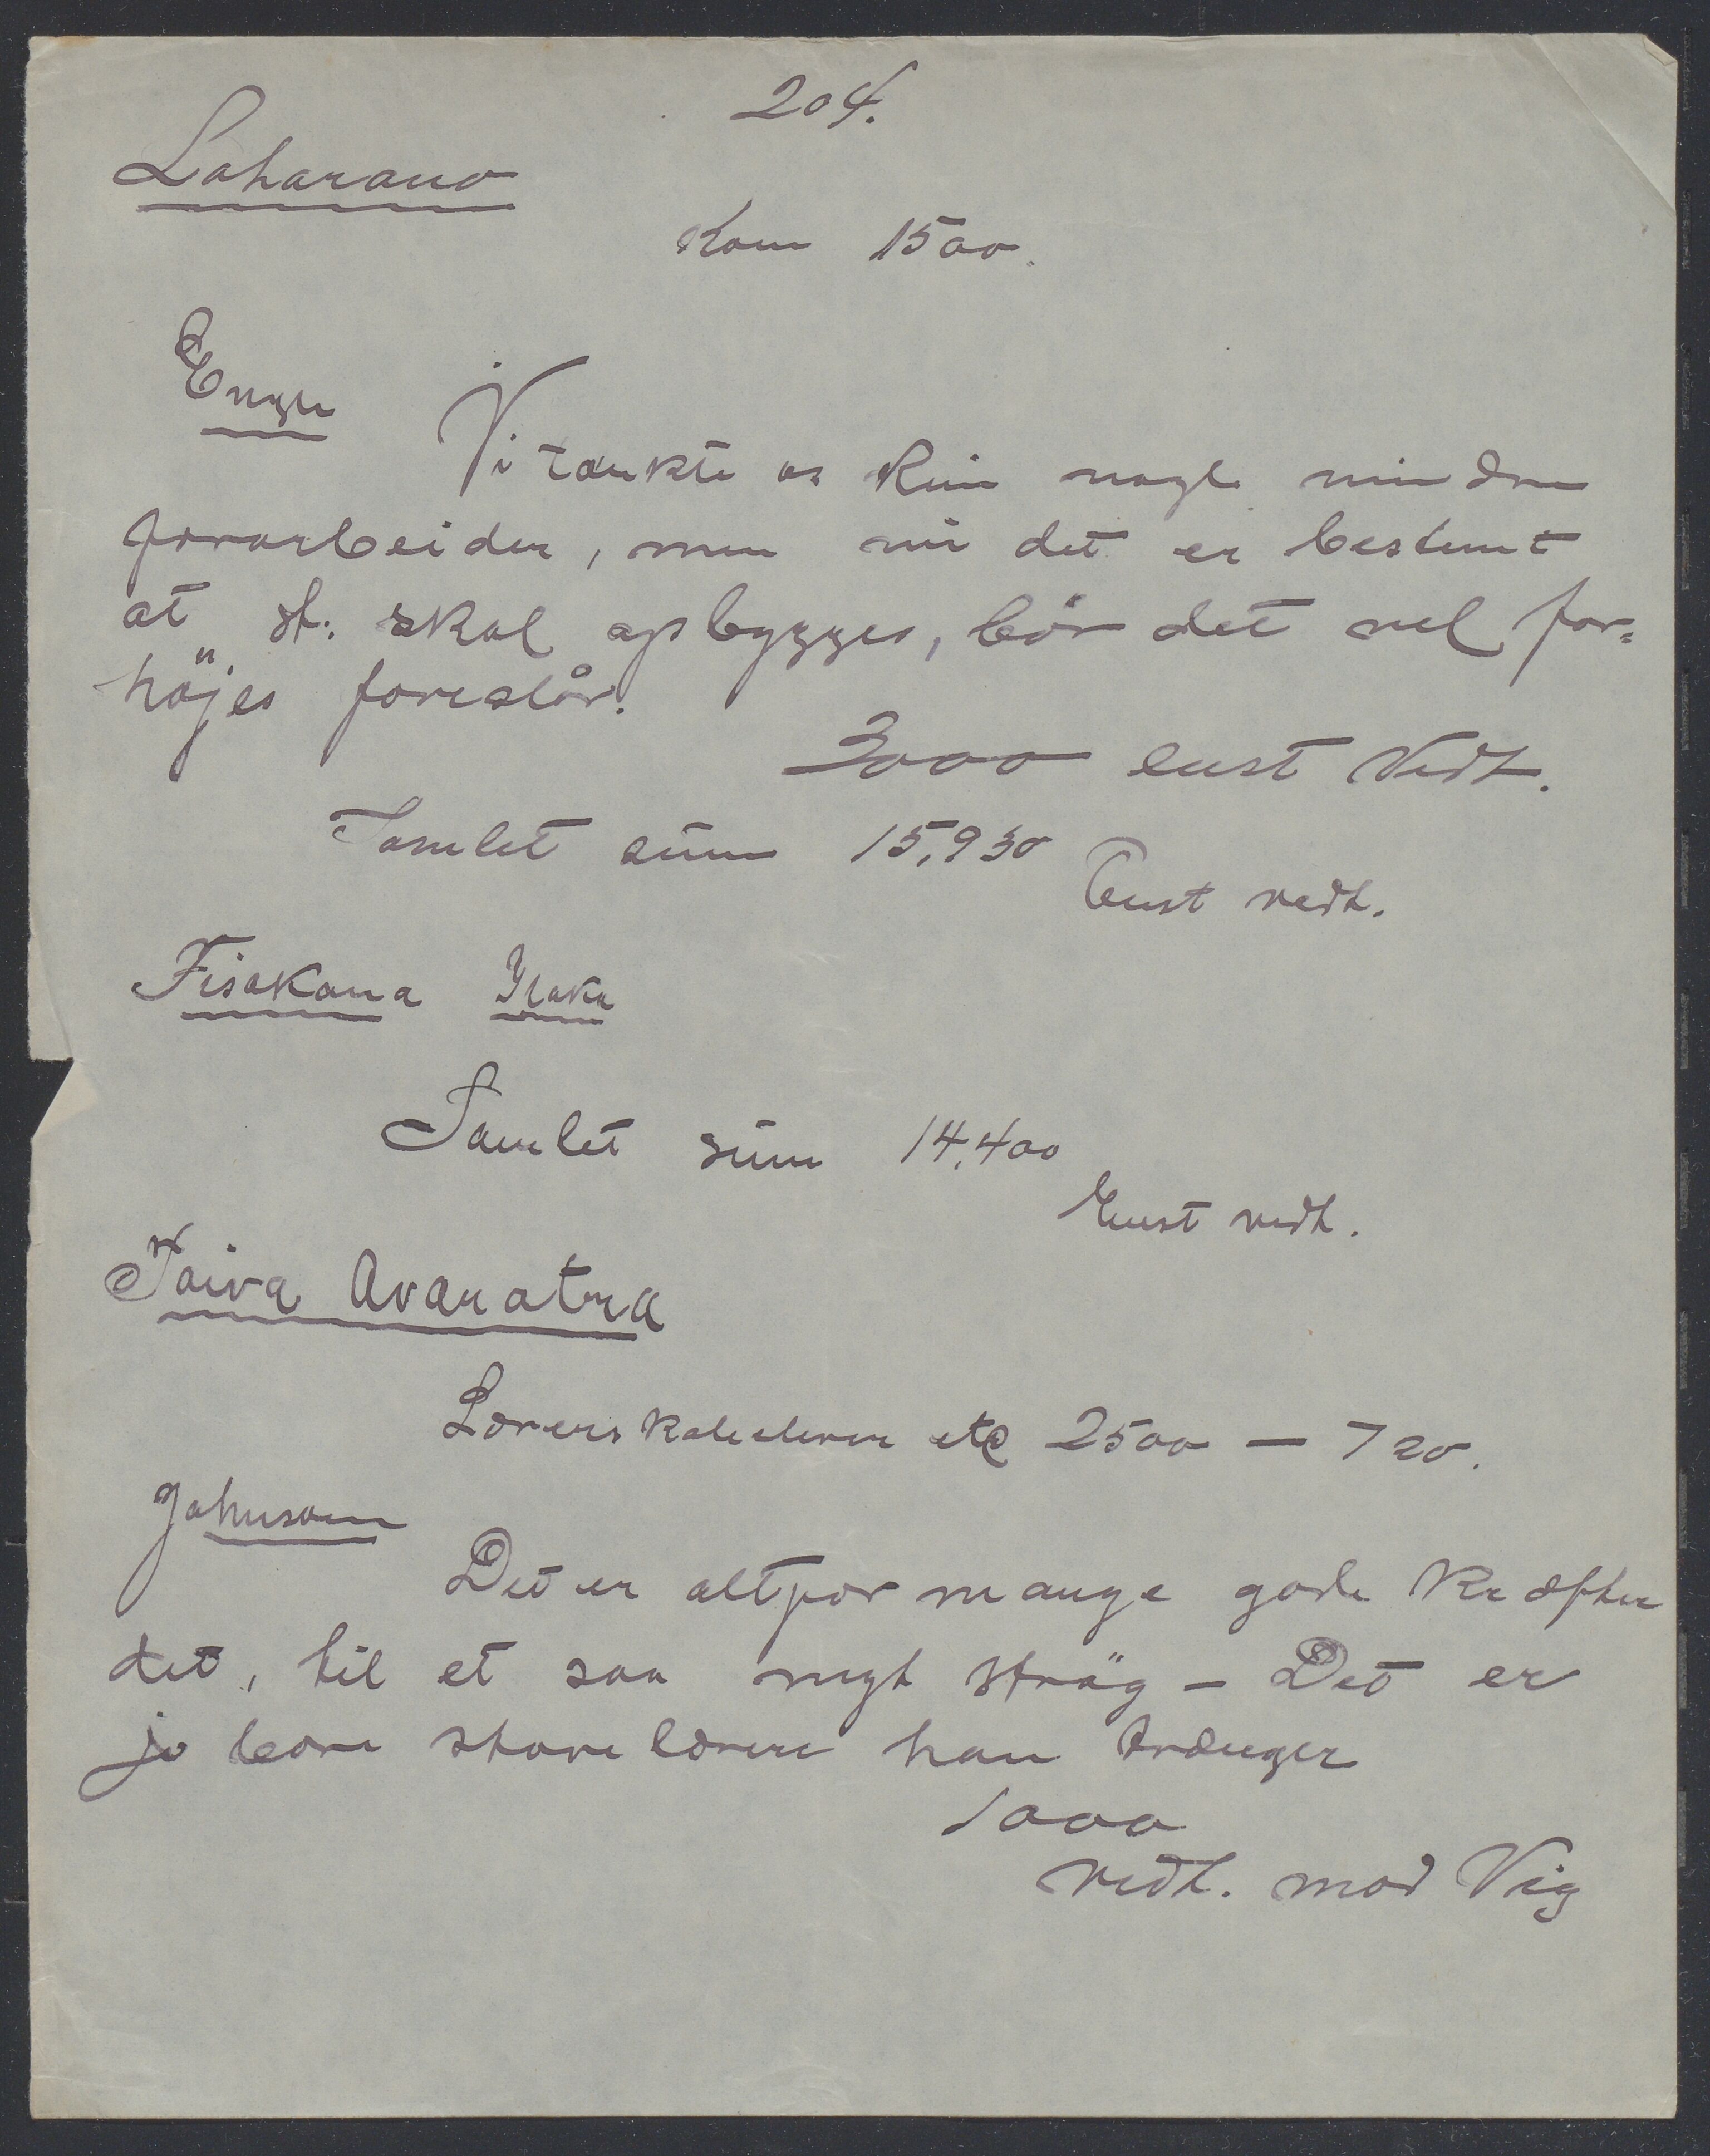 204.
Loharano
Kom 1500.
Engh
Vi tænkte os kun nogle mindre
forarbeider, men nu det er bestemt
at st. skal opbygges, bör det vel for=
höjes foreslår.
3000 enst Vedt.
Samlet sum 15,930
Enst vedt.
Fisakana Ilaka
Samlet sum 14,400
Enst vedt.
Soiva Avaratra
Lærerskolelever etc 2500 – 720.
Johnson
Det er altfor mange gode Kræfter
det, til et saa nyt strög – Det er
jo bare store lærere han trænger
1000
vedt. mod Vig